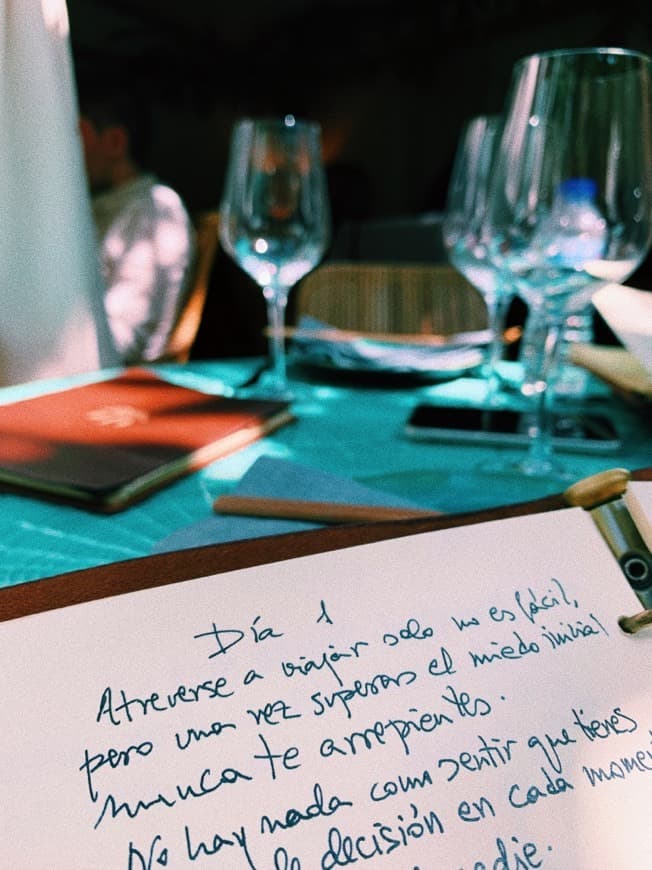 Día 1
Atreverse a viajar solo no es fácil,
pero una vez superas el miedo inicial
nunca te arrepientes.
No hay nada como sentir que tienes
la decisión en cada momen
nadie.